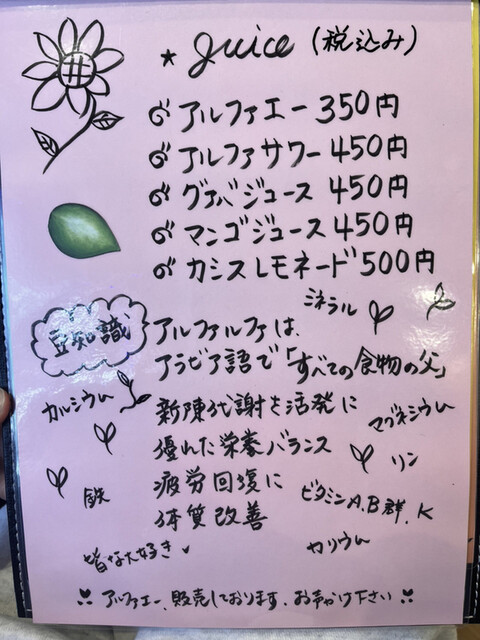 ★ juice (税込み)
アルファエー 350円
アルファサワー 450円
グァバジュース 450円
マンゴジュース 450円
カシスレモネード 500円
ミネラル
豆知識
アルファルファは、
アラビア語で「すべての食物の父」
カルシウム
新陳代謝を活発に
マグネシウム
優れた栄養バランス
リン
疲労回復に
鉄
ビタミンA.B群.K
体質改善
皆な大好き
カリウム
アルファエー、販売しております。お声かけ下さい